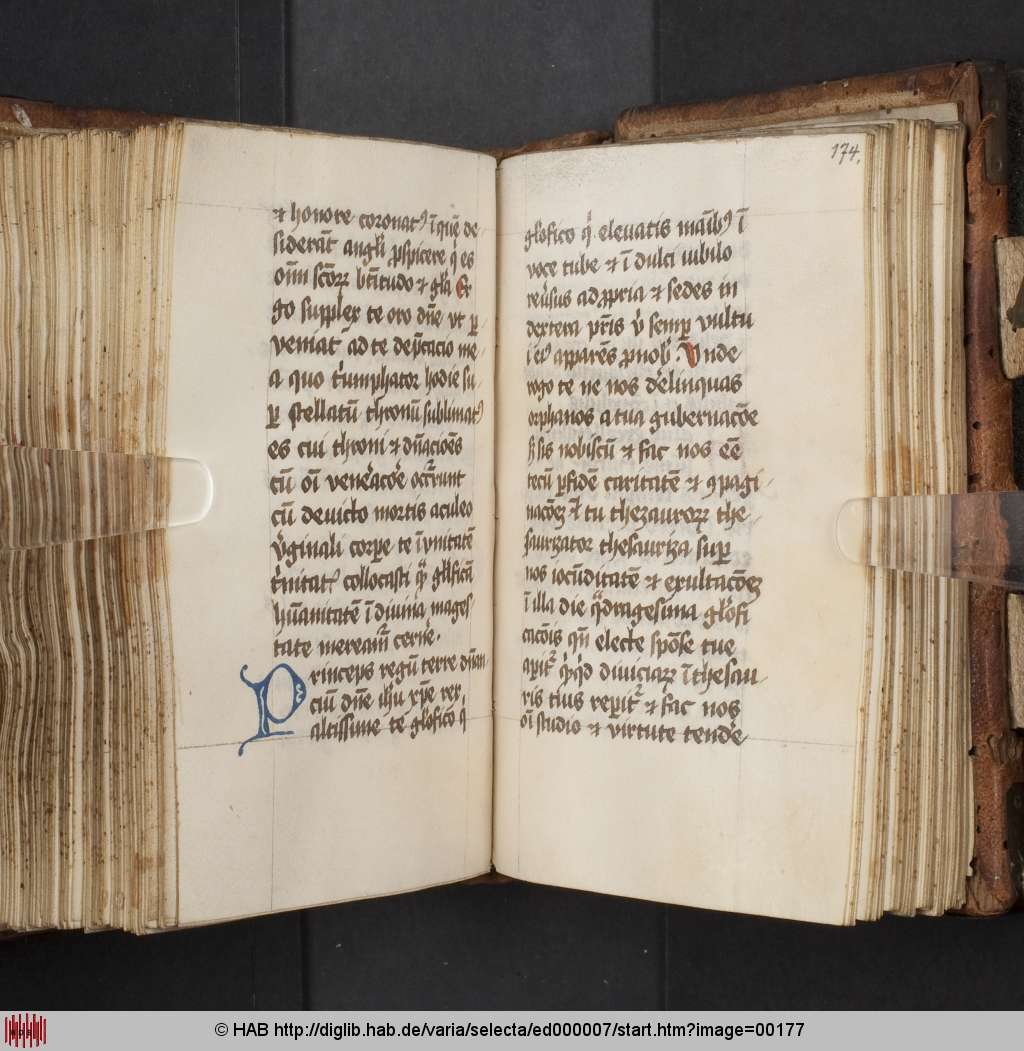 ⁊ honore coronatꝰ ī quē de-
siderāt angli ꝓspicere qͥ es
oīm scōꝝ btītudo ⁊ gla Er
go supplex te oro dn̄e vt ꝑ-
veniat ad te dep̄cacio me-
a quo triumphator hodie su-
ꝑ stellatū thronū sublimatꝰ
es cui throni ⁊ dn̄acioēs
cū oī ven̄acōe occ̄runt
cū devicto mortis aculeo
v̓ginali corpe te ī vnitatē
t̓nitatꝭ collocasti qͣ glīficā
hūanitatē ī divina mages
tate meream̄ cerne᷑.
Princeps regū terre dn̄an
ciū dn̄e ihū xp̄e rex
altissime te glōfico qͥ
174.
glōfico qͥ elevatis manibꝰ ī
voce tube ⁊ ī dulci iubilo
rev̓sus ad ꝓpria ⁊ sedes in
dextera pr̄is v̓ semꝑ vultu
apparēs ꝓ nob̄ Vnde
rogo te ne nos derelinquas
orphanos a tua gubernacōe
sis nobiscū ⁊ fac nos eē
tecū ꝑ fidē caritatē ⁊ ꝯpagi-
nacōem tu thezauroꝝ the-
saurizator thesauriza suꝑ
nos iocūditatē ⁊ exultacōem
ī illa die qͣdragesima glōfi
cacōis qn̄ electe spōse tue
apit᷑ qͥqͥd diviciaꝝ ī thesau-
ris tuis repit᷑ ⁊ fac nos
oī studio ⁊ virtute tende᷑
© HAB http://diglib.hab.de/varia/selecta/ed000007/start.htm?image=00177